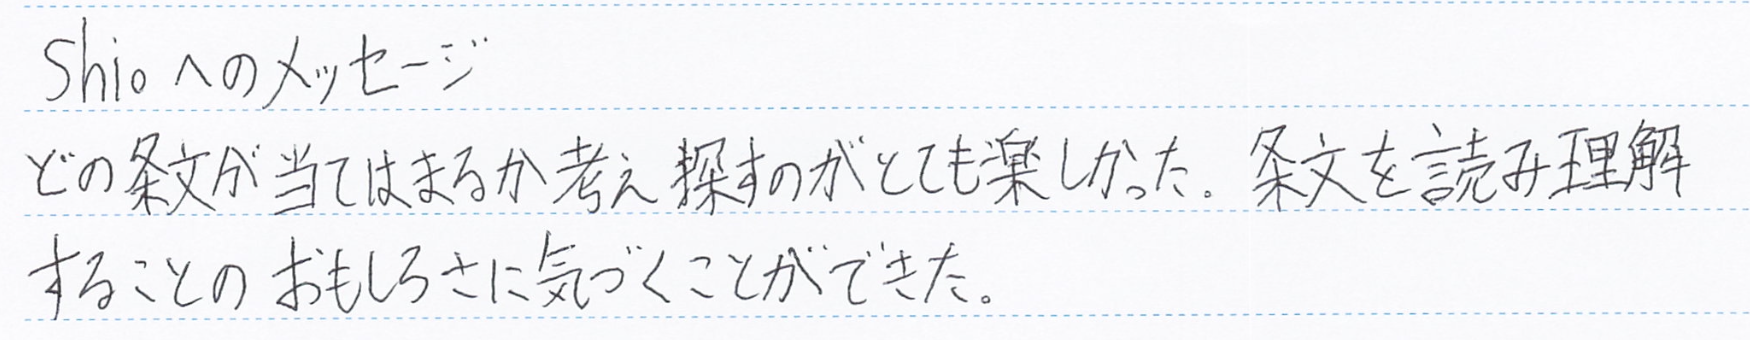 Shioへのメッセージ
どの条文が当てはまるか考え探すのがとても楽しかった。条文を読み理解
することのおもしろさに気づくことができた。